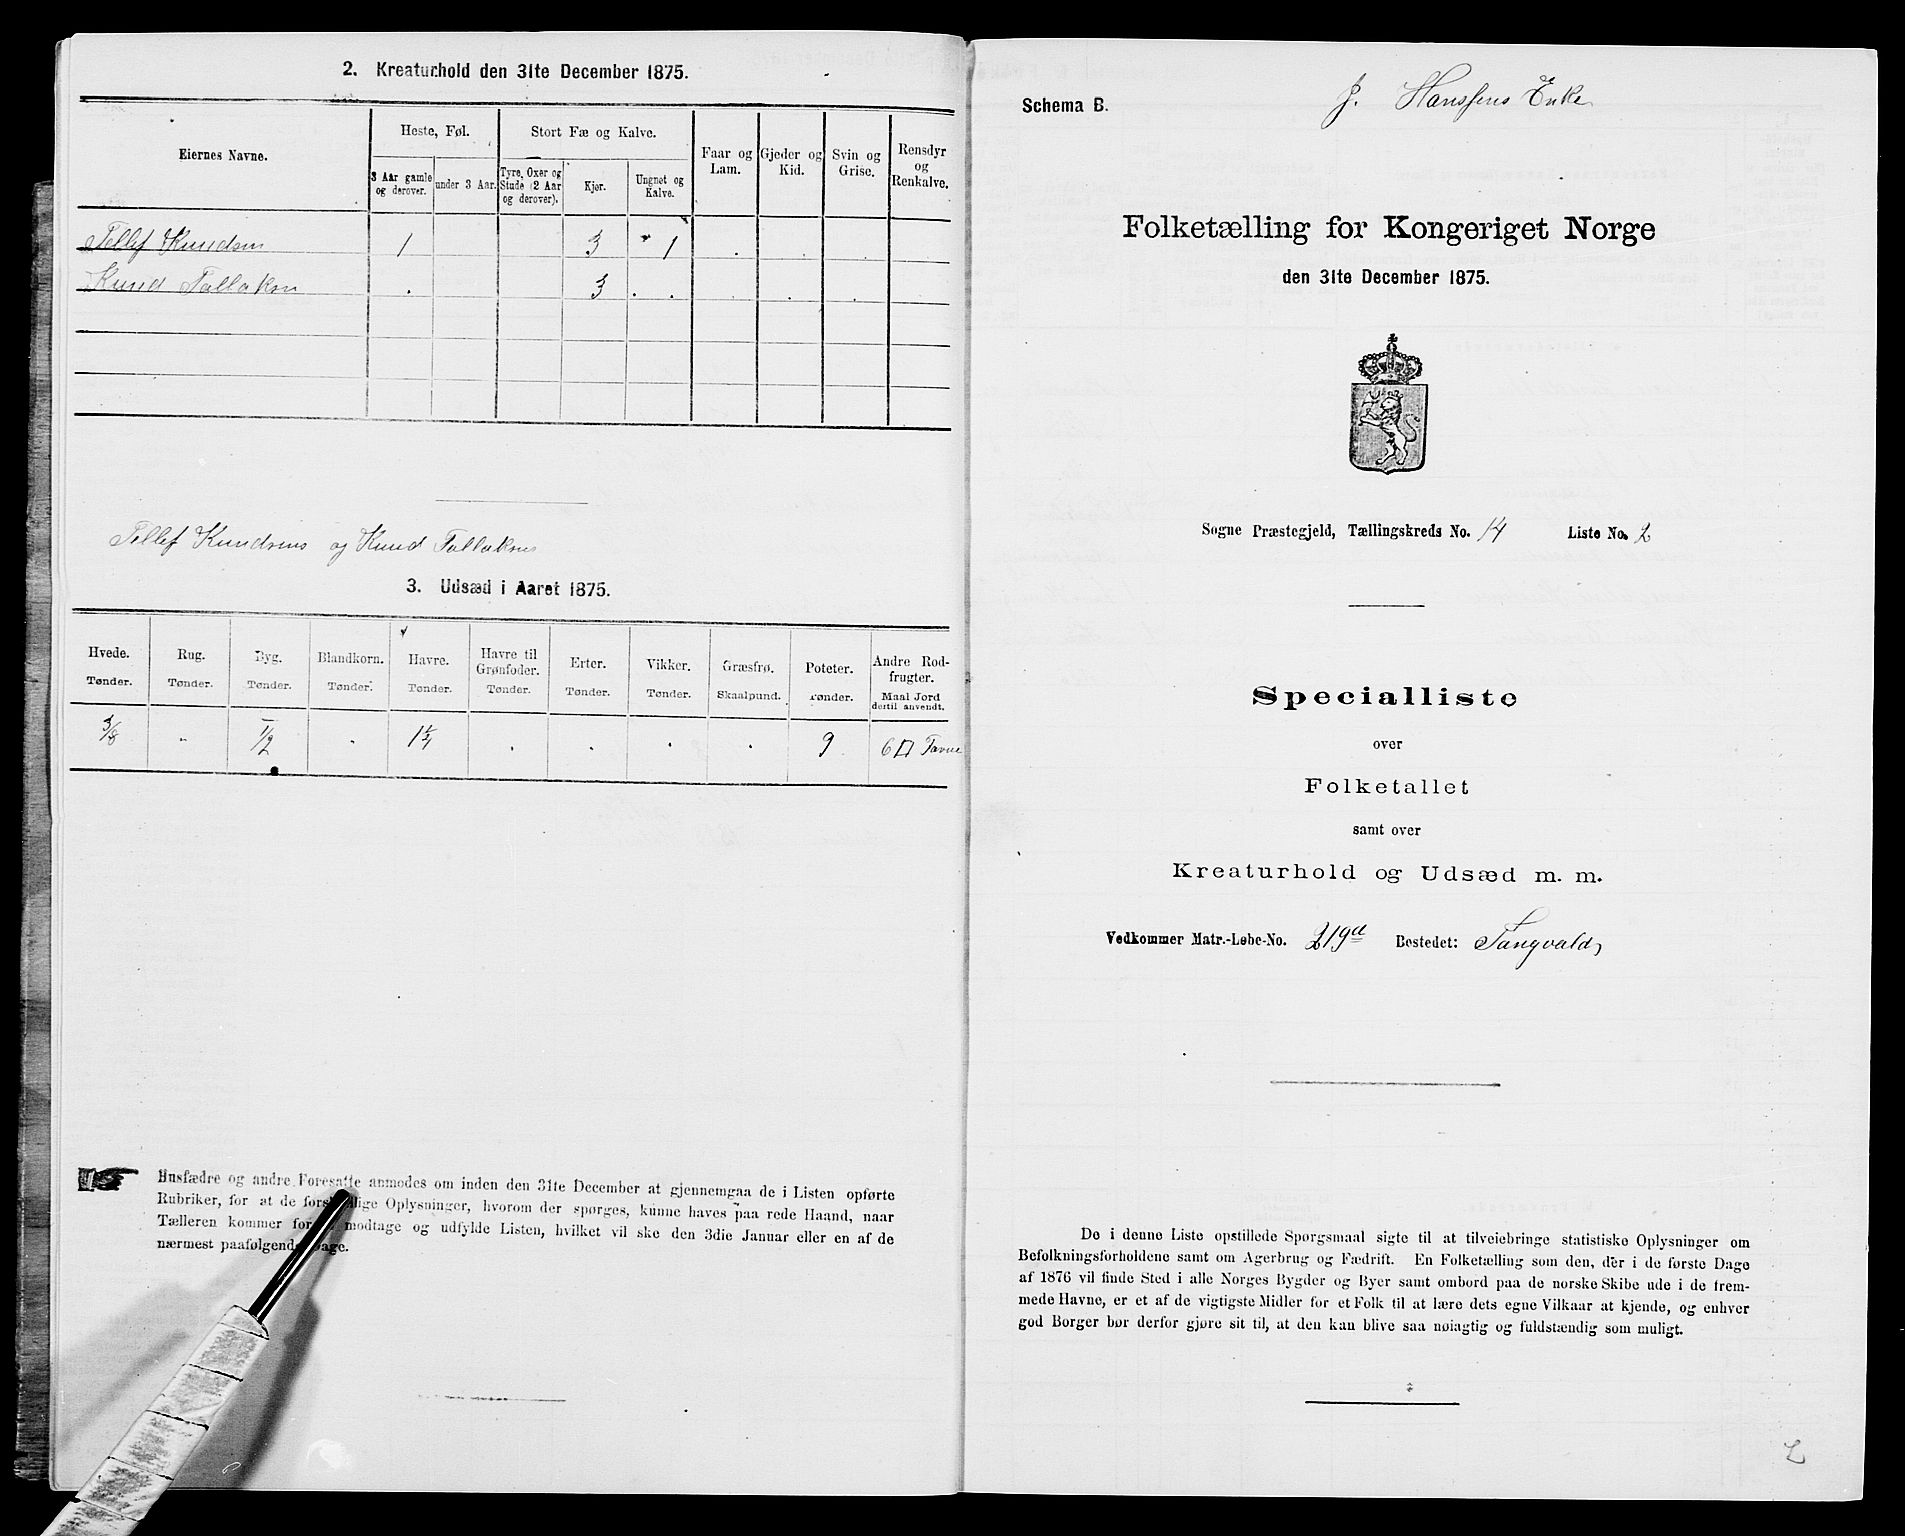 2. Kreaturhold den 31te December 1875.
Eiernes Navne.
Heste, Føl.
Stort Fæ og Kalve.
Faar og Lam.
Gjeder og Kid.
Svin og Grise.
Rensdyr og Renkalve.
3 Aar gamle og derover.
under 3 Aar.
Tyre, Oxer og Stude (2 Aar og derover).
Kjør.
Ungnøt og Kalve.
Tellef Knudsen 1 3 1
Knud Tallaksn 3
Tellef Knudsens og Knud Tallaksns
3. Udsæd i Aaret 1875.
Hvede. Tønder.
Rug. Tønder.
Byg. Tønder.
Blandkorn. Tønder.
Havre. Tønder.
Havre til Grønfoder. Tønder.
Erter. Tønder.
Vikker. Tønder.
Græsfrø. Skaalpund.
Poteter. Tønder.
Andre Rodfrugter. Maal Jord dertil anvendt.
3/8 " 1/2 " . . . . 9 6 □ Favne
Husfædre og andre Foresatte anmodes om inden den 31te December at gjennemgaa de i Listen opførte
Rubriker, for at de Oplysninger, hvorom der spørges, kunne haves paa rede Haand, naar
Tælleren kommer for modtage og udfylde Listen, hvilket vil ske den 3die Januar eller en af de
nærmest paafølgende Dage.
Schema B.
J. Hanssens Enke
Folketælling for Kongeriget Norge
den 31te December 1875.
Sogne Præstegjeld, Tællingskreds No. 14 Liste No. 2
Specialliste
over
Folketallet
samt over
Kreaturhold og Udsæd m. m.
Vedkommer Matr.-Løbe-No. 219d Bostedet: Tangvald,
De i denne Liste opstillede Spørgsmaal sigte til at tilveiebringe statistiske Oplysninger om
Befolkningsforholdene samt om Agerbrug og Fædrift. En Folketælling som den, der i de første Dage
af 1876 vil finde Sted i alle Norges Bygder og Byer samt ombord paa de norske Skibe ude i de frem-
mede Havne, er et af de vigtigste Midler for et Folk til at lære dets egne Vilkaar at kjende, og enhver
god Borger bør derfor gjøre sit til, at den kan blive saa nøiagtig og fuldstændig som muligt.